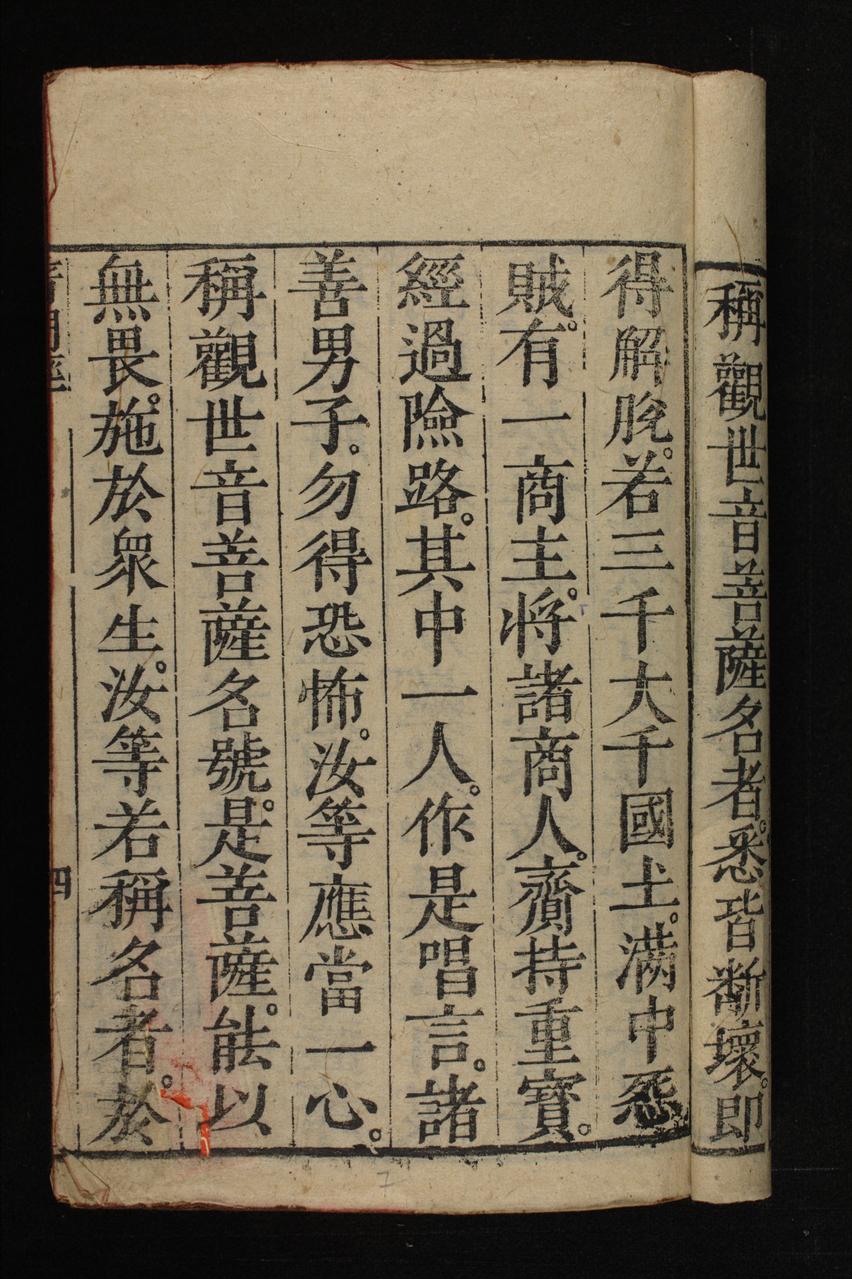 稱觀世音菩薩名者。悉皆斷壞。即
得解脫。若三千大千國土。滿中怨
賊。有一商主。將諸商人。齎持重寶。
經過險路。其中一人。作是唱言。諸
善男子。勿得恐怖。汝等應當一心。
稱觀世音菩薩名號。是菩薩。能以
無畏。施於衆生。汝等若稱名者。於
普門經
四
7